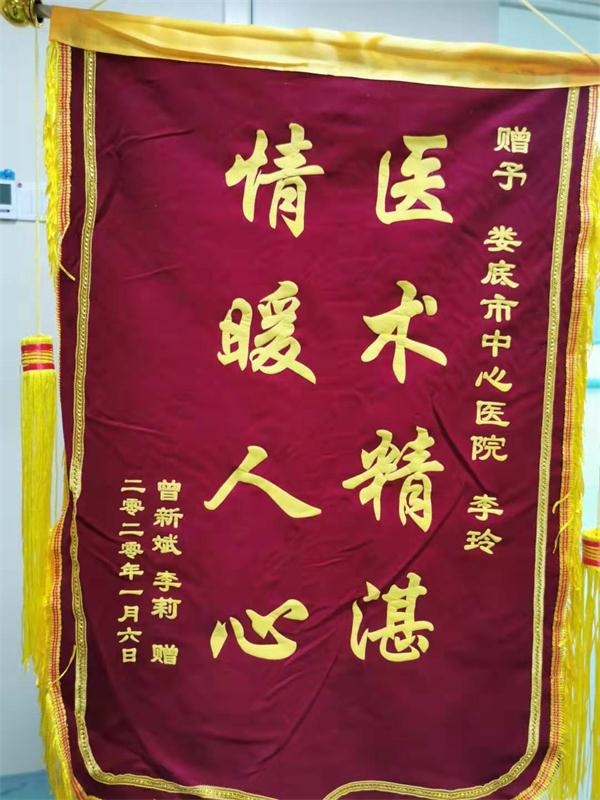 赠予 娄底市中心医院 李玲
医术精湛
情暖人心
曾新斌 李莉 赠
二零二零年一月六日